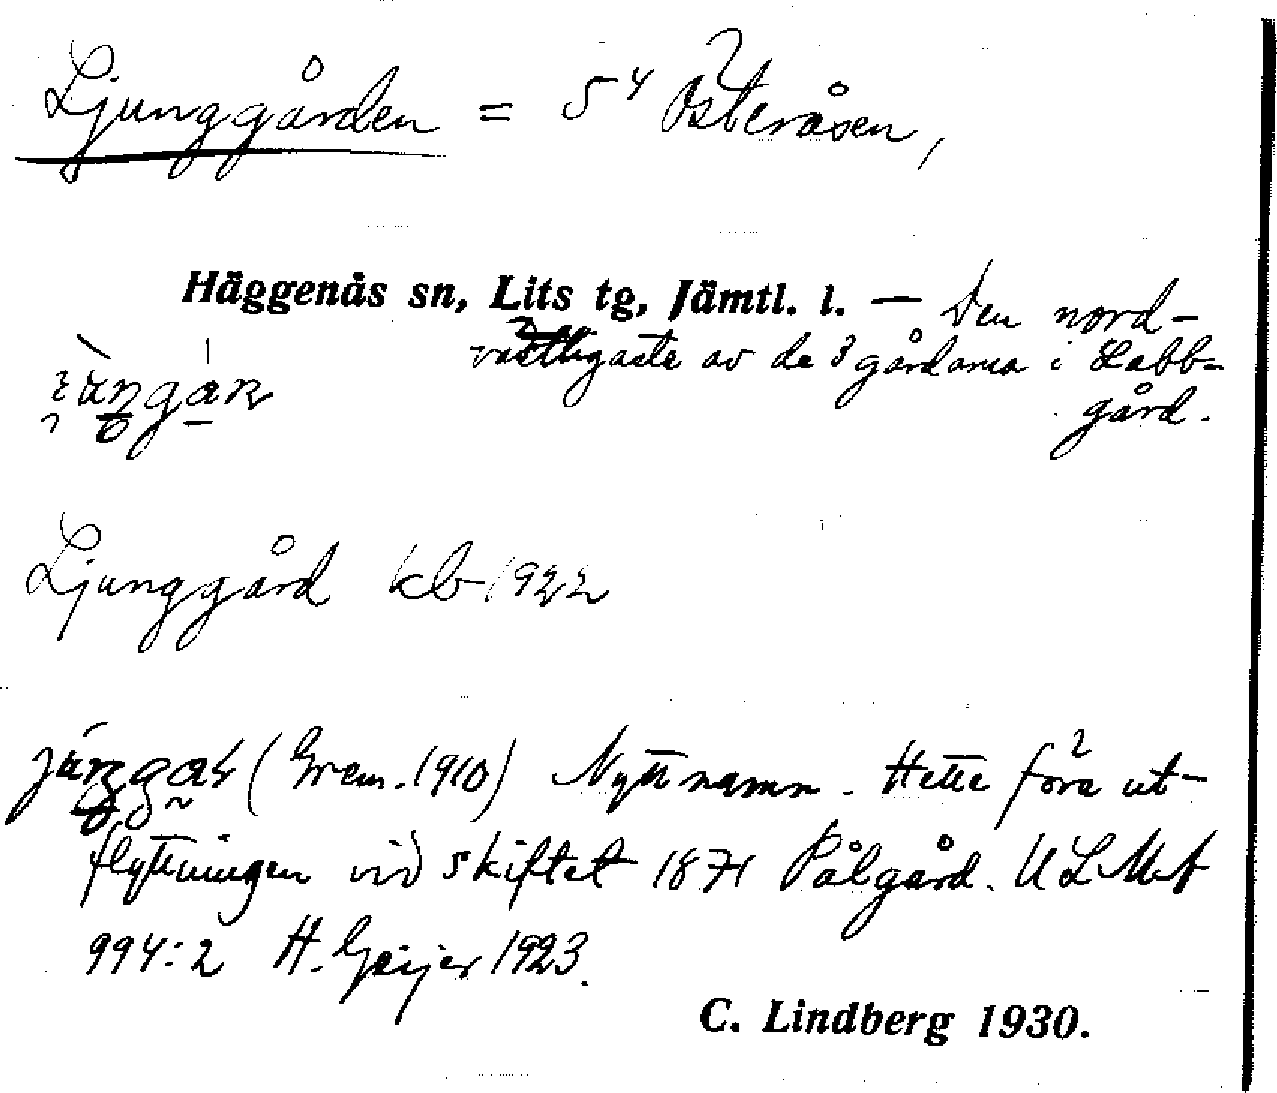 Ljunggården = 5⁴ Österåsen,
Häggenås sn, Lits tg, Jämtl. l. — Den nord-
västligaste av de 3 gårdarna i Labb-
gård.
Ljunggård kb 1922
(Grem. 1910) Nytt namn. Hette före ut-
flyttningen vid skiftet 1871 Pålgård. ULMA
994:2 H. Geijer 1923.
C. Lindberg 1930.